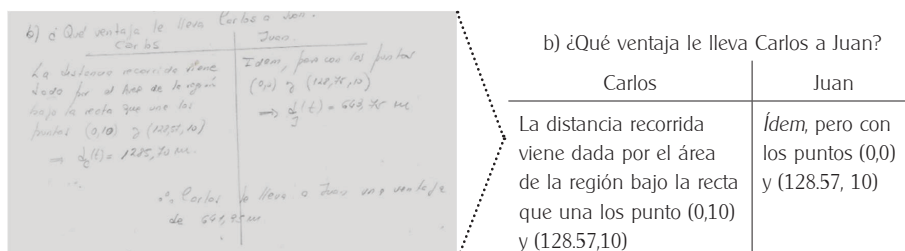 b) ¿Qué ventaja le lleva Carlos a Juan.
Carlos
Juan.
La distancia recorrida viene
dada por el área de la región
bajo la recta que une los
puntos (0,10) y (128,57, 10)
Idem, pero con los puntos
(0,0) y (128,75, 10)
Carlos le lleva a Juan una ventaja
de
b) ¿Qué ventaja le lleva Carlos a Juan?
Carlos
Juan
La distancia recorrida
viene dada por el área
de la región bajo la recta
que una los punto (0,10)
y (128.57,10)
Ídem, pero con
los puntos (0,0)
y (128.57, 10)